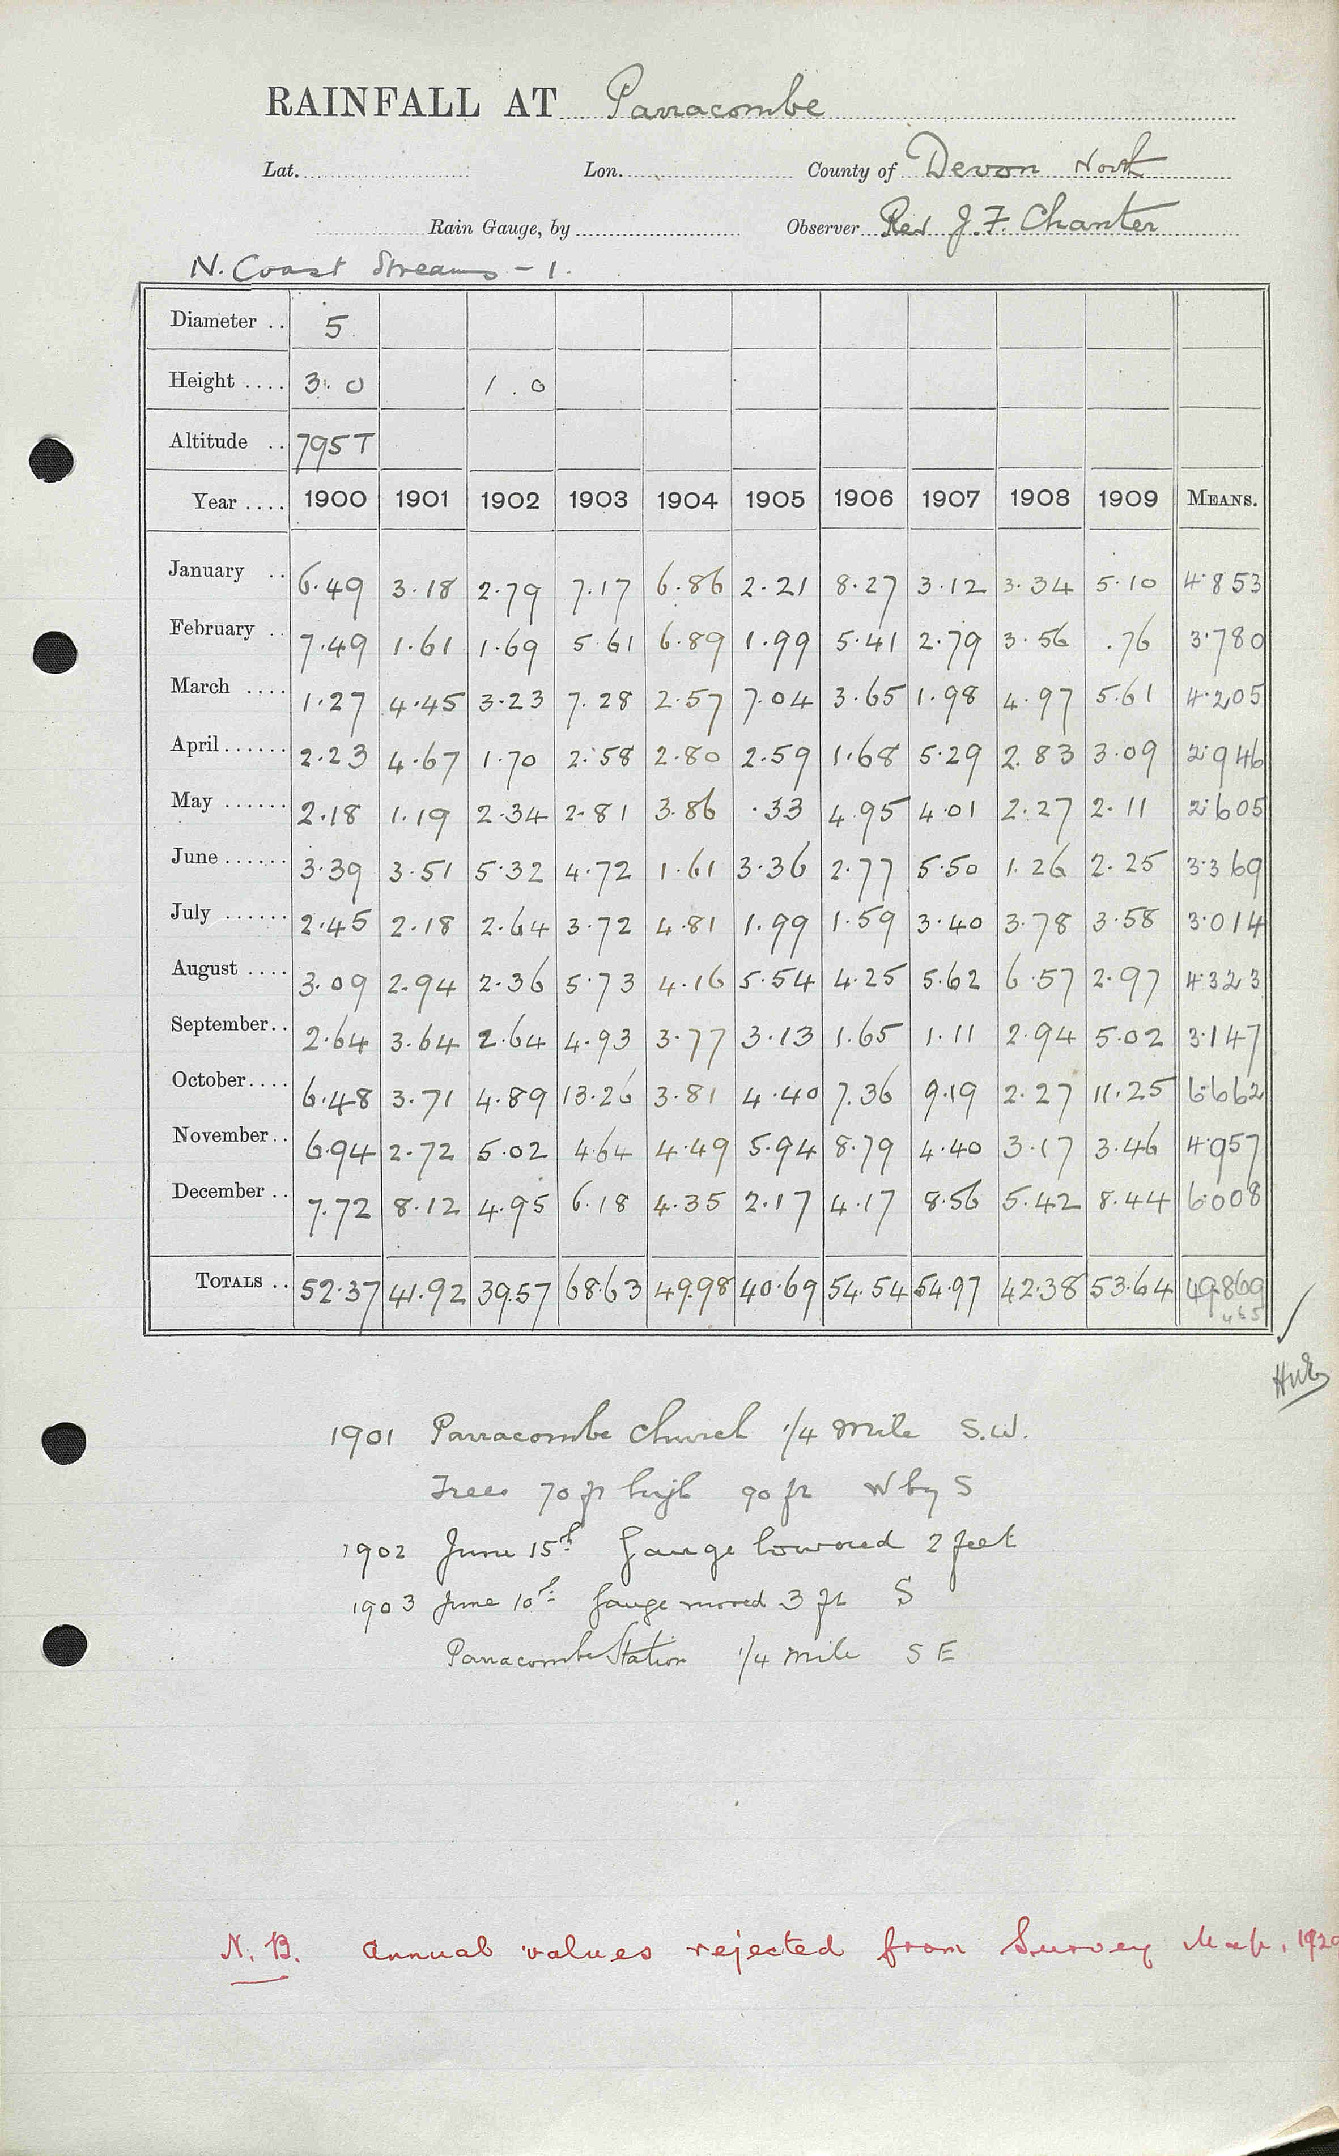 RAINFALL AT Parracombe
Lat. Lon. County of Devon North
Rain Gauge, by Observer Rev J. F. Chanter
N. Coast Streams - 1.
Diameter .. 5
Height .... 3. 0 1. 0
Altitude .. 795 T
Year .... 1900 1901 1902 1903 1904 1905 1906 1907 1908 1909 MEANS.
January .. 6.49 3.18 2.79 7.17 6.86 2.21 8.27 3.12 3.34 5.10 4.853
February .. 7.49 1.61 1.69 5.61 6.89 1.99 5.41 2.79 3.56 .76 3.780
March .... 1.27 4.45 3.23 7.28 2.57 7.04 3.65 1.98 4.97 5.61 4.205
April ...... 2.23 4.67 1.70 2.58 2.80 2.59 1.68 5.29 2.83 3.09 2.946
May ...... 2.18 1.19 2.34 2.81 3.86 .33 4.95 4.01 2.27 2.11 2.605
June ...... 3.39 3.51 5.32 4.72 1.61 3.36 2.77 5.50 1.26 2.25 3.369
July ...... 2.45 2.18 2.64 3.72 4.81 1.99 1.59 3.40 3.78 3.58 3.014
August .... 3.09 2.94 2.36 5.73 4.16 5.54 4.25 5.62 6.57 2.97 4.323
September.. 2.64 3.64 2.64 4.93 3.77 3.13 1.65 1.11 2.94 5.02 3.147
October.... 6.48 3.71 4.89 13.26 3.81 4.40 7.36 9.19 2.27 11.25 6.662
November.. 6.94 2.72 5.02 4.64 4.49 5.94 8.79 4.40 3.17 3.46 4.957
December .. 7.72 8.12 4.95 6.18 4.35 2.17 4.17 8.56 5.42 8.44 6.008
TOTALS .. 52.37 41.92 39.57 68.63 49.98 40.69 54.54 54.97 42.38 53.64 49.869
1901 Parracombe Church 1/4 Mile S.W.
Trees 70 ft high 90 ft W by S
1902 June 15th Gauge lowered 2 feet
1903 June 10th Gauge moved 3 ft S
Parracombe Station 1/4 mile S E
N. B. Annual values rejected from Survey Map,